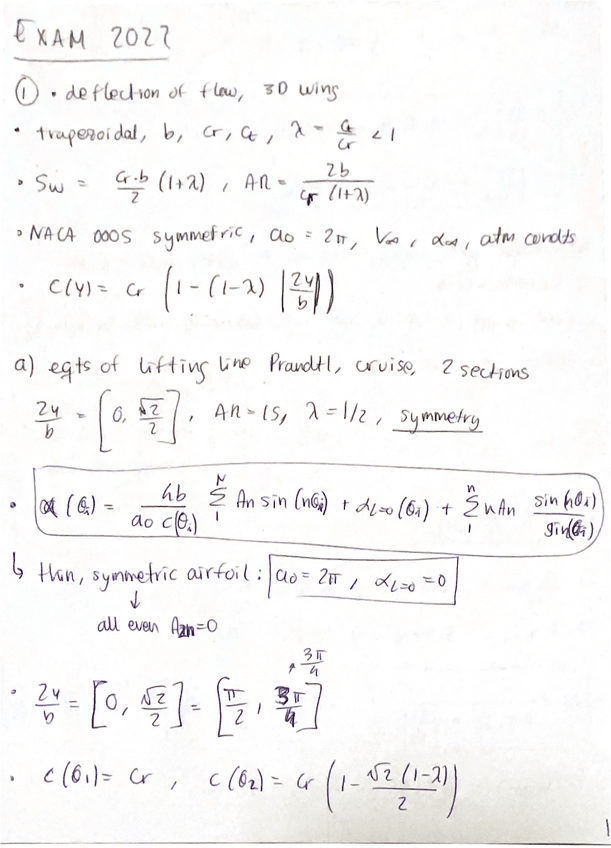 EXAM 2022
① • deflection of flow, 3D wing
• trapezoidal, b, cr, ct, λ = ct/cr < 1
• Sw = cr·b/2 (1+λ), AR = 2b/(cr (1+λ))
• NACA 0005 symmetric, a0 = 2π, V∞, α∞, atm condts
• c(y) = cr (1 - (1-λ) |2y/b|)
a) eqts of lifting line Prandtl, cruise, 2 sections
2y/b = [0, √2/2], AR = 15, λ = 1/2, symmetry
• α(θi) = 4b/(a0 c(θi)) Σ₁ᴺ An sin(nθi) + αL=0(θi) + Σ₁ⁿ nAn sin(nθi)/sin(θi)
↳ thin, symmetric airfoil: a0 = 2π, αL=0 = 0
↓
all even A2n=0
3π/4
• 2y/b = [0, √2/2] = [π/2, 3π/4]
• c(θ1) = cr, c(θ2) = cr (1 - √2(1-λ)/2)
1